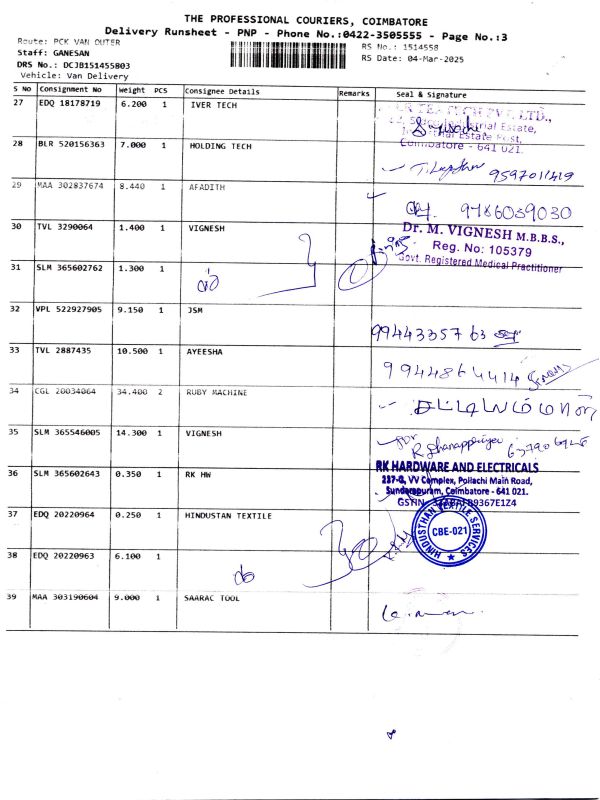 THE PROFESSIONAL COURIERS, COIMBATORE
Delivery Runsheet - PNP - Phone No.:0422-3505555 - Page No.:3
Route: PCK VAN OUTER
RS No.: 1514558
Staff: GANESAN
RS Date: 04-Mar-2025
DRS No.: DCJB151455803
Vehicle: Van Delivery
S No Consignment No Weight PCS Consignee Details Remarks Seal & Signature
27 EDQ 18178719 6.200 1 IVER TECH
Industrial Estate,
Coimbatore - 641 021.
28 BLR 520156363 7.000 1 HOLDING TECH
9597011419
29 MAA 302837674 8.440 1 AFADITH
9786039030
30 TVL 3290064 1.400 1 VIGNESH
Dr. M. VIGNESH M.B.B.S.,
Reg. No: 105379
Govt. Registered Medical Practitioner
31 SLM 365602762 1.300 1
32 VPL 522927905 9.150 1 JSM
9944335763
33 TVL 2887435 10.500 1 AYEESHA
9944864414
34 CGL 20034064 34.400 2 RUBY MACHINE
35 SLM 365546005 14.300 1 VIGNESH
for
36 SLM 365602643 0.350 1 RK HW
RK HARDWARE AND ELECTRICALS
237-B, VV Complex, Pollachi Main Road,
Sundarapuram, Coimbatore - 641 021.
37 EDQ 20220964 0.250 1 HINDUSTAN TEXTILE
HINDUSTHAN TEXTILE SERVICES
CBE-021
38 EDQ 20220963 6.100 1
39 MAA 303190604 9.000 1 SAARAC TOOL